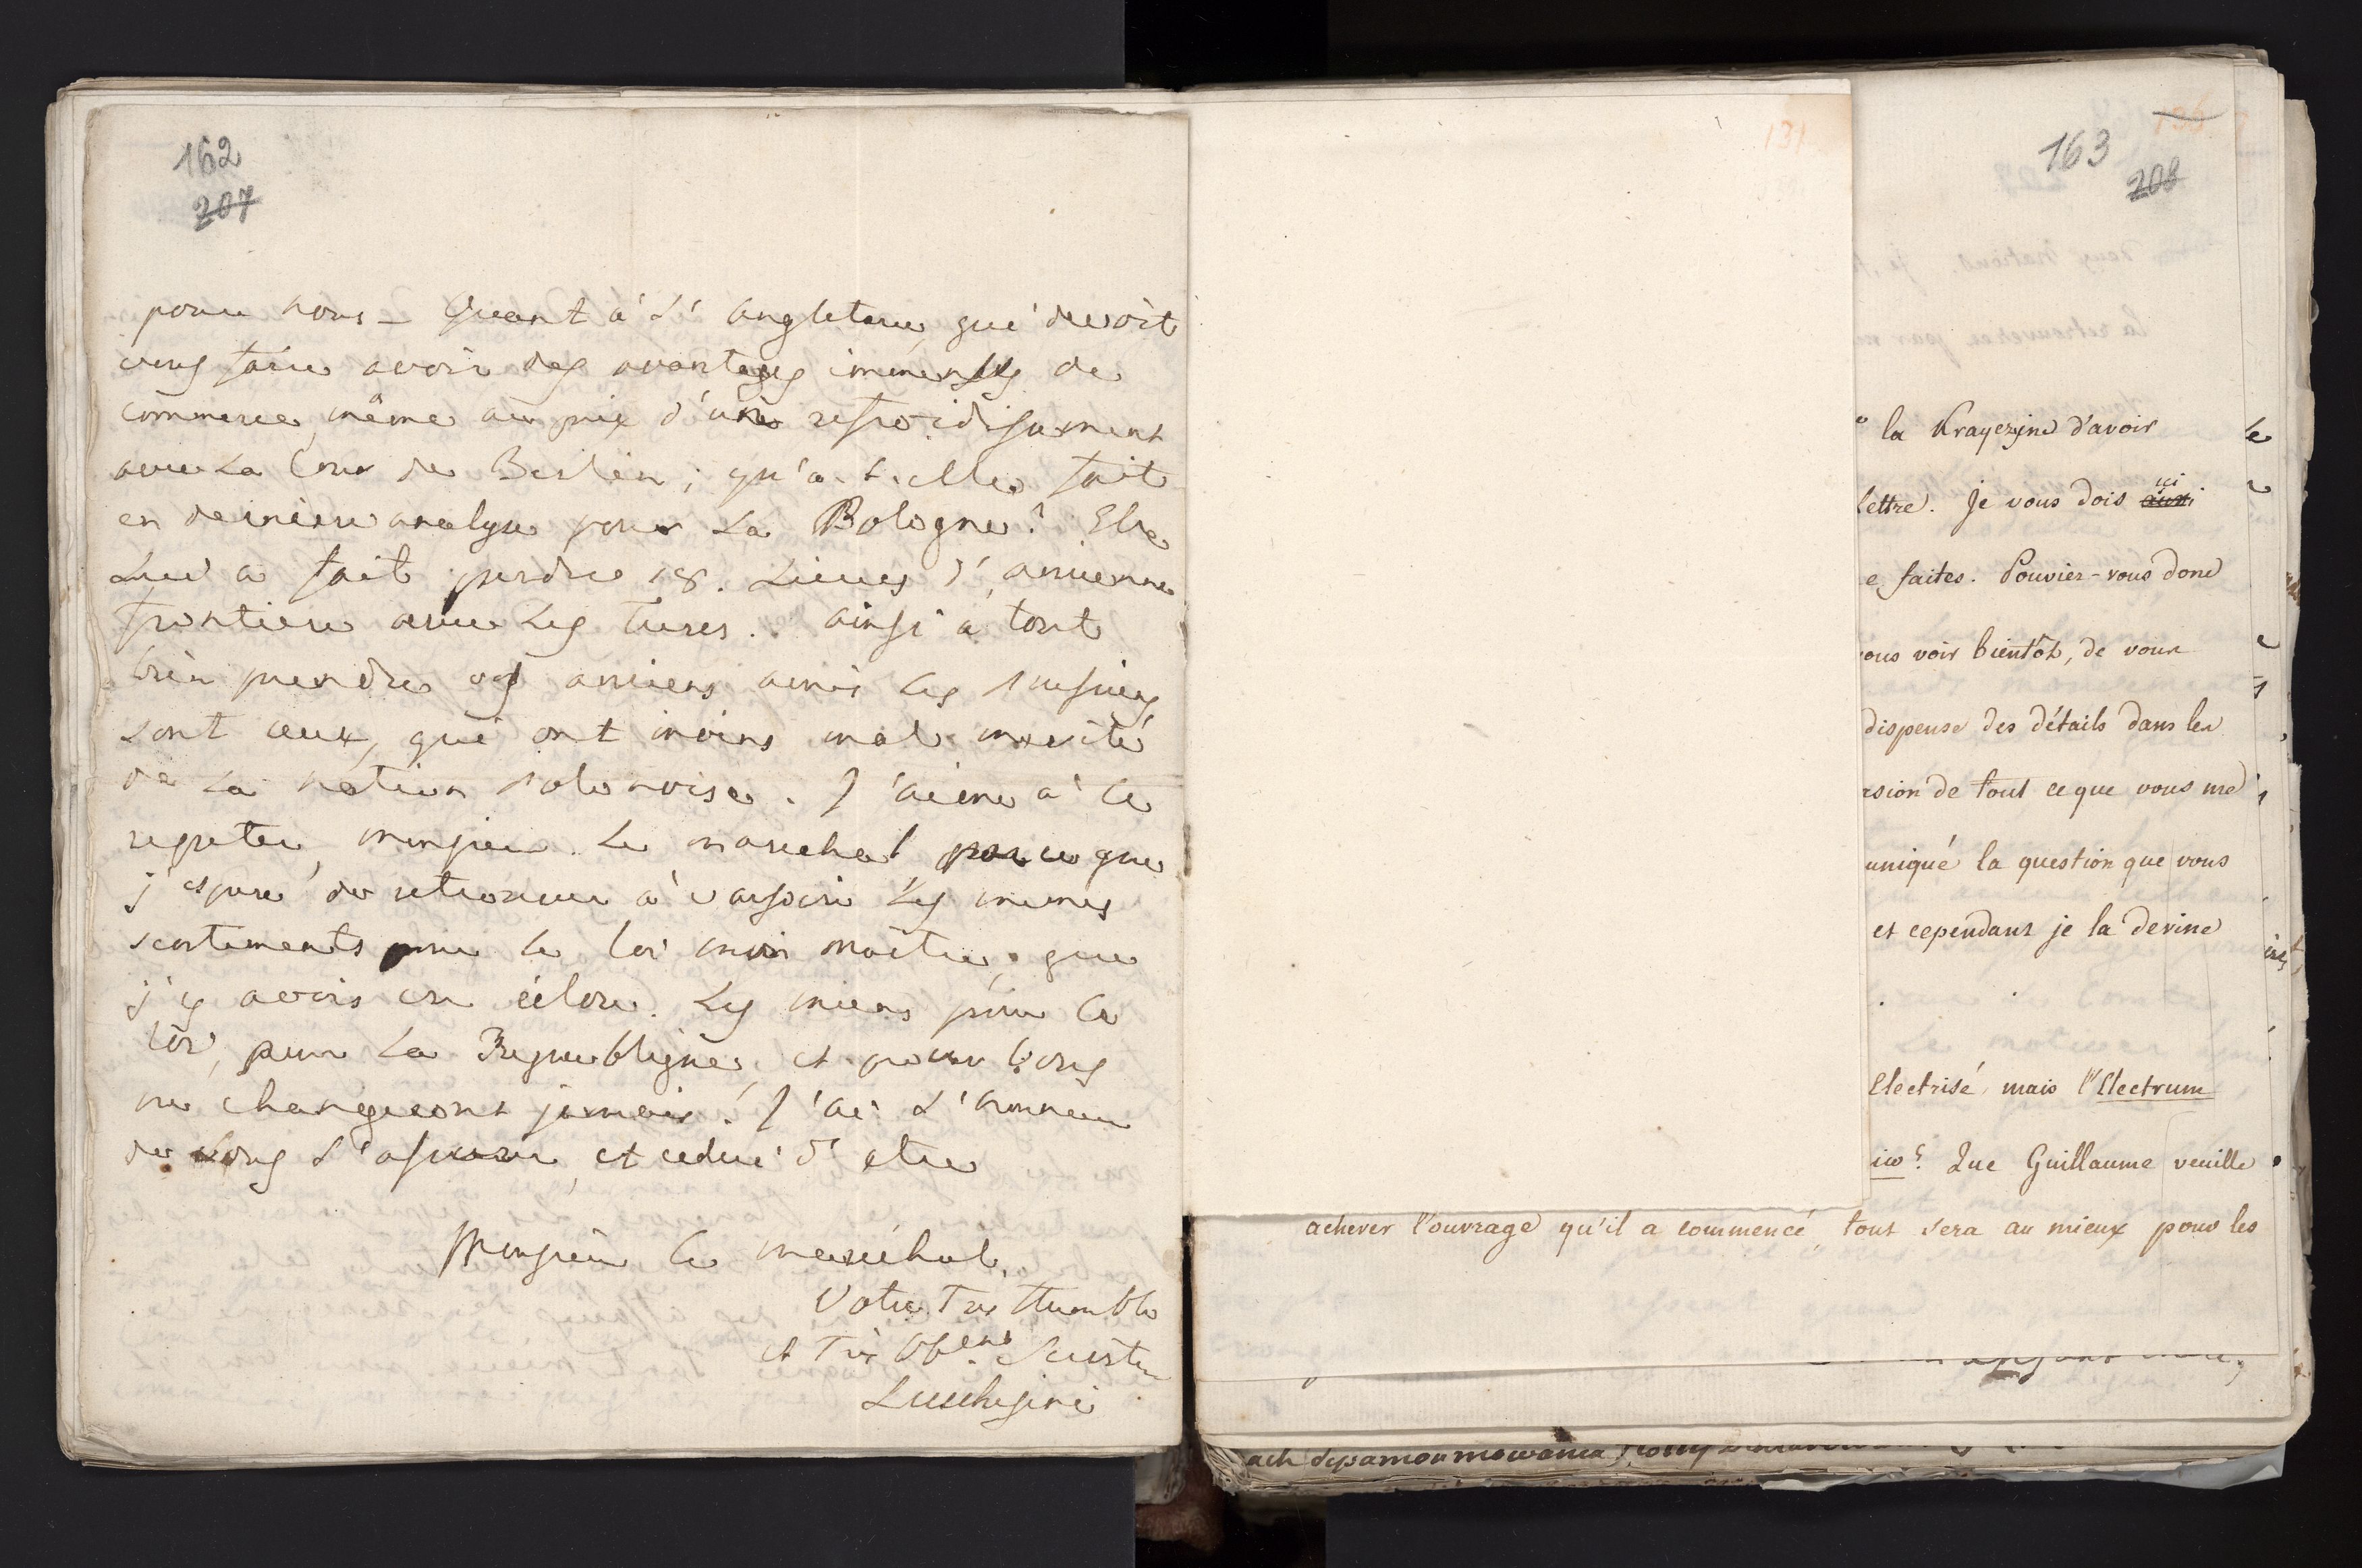 162
207
pour nous _ Quant à L'angleterre, qui devoit
vous faire avoir des avantages immenses de
commerce, même au prix d'une refroidissement
avec La Cour de Berlin; qu'a-t-elle fait
en derniere analyse pour La Pologne? Elle
Lui a fait perdre 18. Lieues d'ancienne
frontiere avec Les Turcs. ainsi a tout
bien prendre vos anciens amis Les Prussiens
sont ceux, qui ont moins mal merité
de La nation Polonoise. J'aime à Le
repeter, monsieur Le marechal parce que
j'espere de retrouver à varsovie Les mêmes
sentiments pour Le Roi mon maitre, que
j'y avois vu éclore. Les miens pour Le
Roi, pour La Republique, et pour Vous
ne changeront jamais. J'ai L'honneur
de Vous L'assurer, et celui d'etre
Monsieur Le marechal,
Votre Très Humble
et Très Obent Serviteur
Lucchesini
131
163
208
la Krayczyne d'avoir
lettre. Je vous dois ici aussi
e faites. Pouviez-vous donc
ous voir bientôt, de vous
dispense des détails dans les
rsion de tout ce que vous me
uniqué la question que vous
et cependant je la devine
Electrisé, mais l'Electrum
Que Guillaume veuille
achever l'ouvrage qu'il a commencé, tout sera au mieux pour les